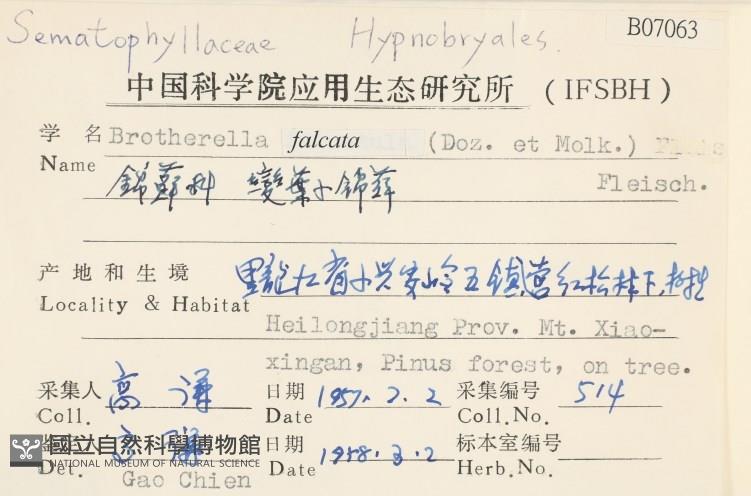 Sematophyllaceae Hypnobryales.
B07063
中国科学院应用生态研究所 (IFSBH)
学名 Brotherella falcata (Doz. et Molk.)
Name Fleisch.
錦蘚科 彎葉小錦蘚
产地和生境 黑龍江省小兴安岭五鎮营红松林下,树生
Locality & Habitat
Heilongjiang Prov. Mt. Xiao-
xingan, Pinus forest, on tree.
采集人 高謙 日期 1957. 7. 2 采集编号 514
Coll. Date Coll.No.
日期 1958.3.2 标本室编号
Det. Gao Chien Date Herb.No.
國立自然科學博物館
NATIONAL MUSEUM OF NATURAL SCIENCE